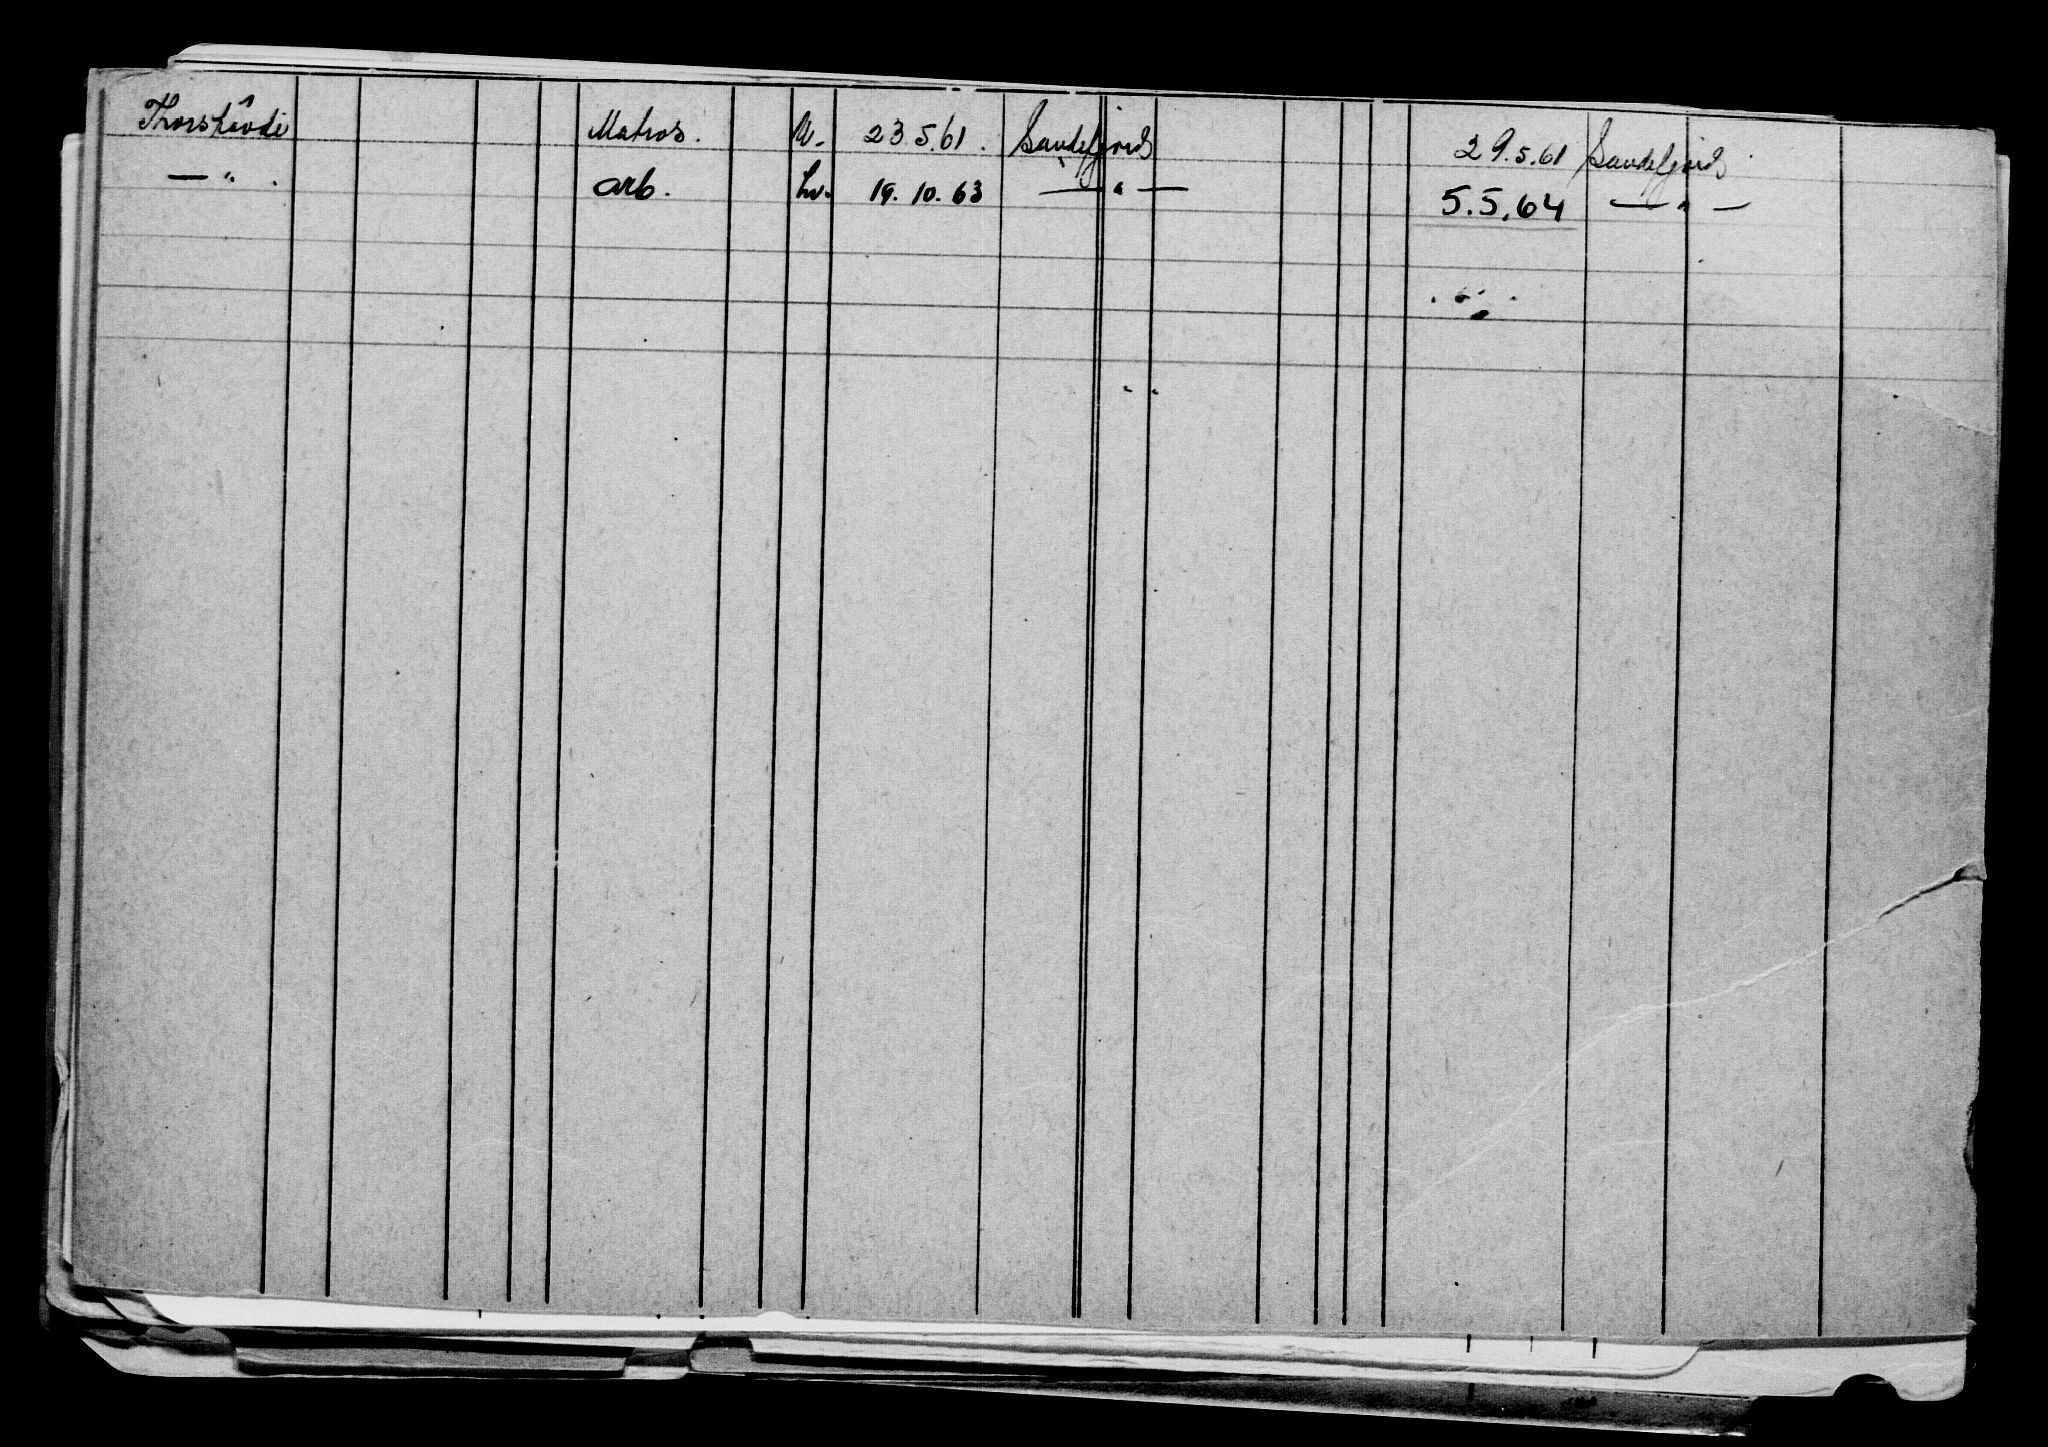 Thorshâvdi Matros. U. 23.5.61. Sandefjord 29.5.61 Sandefjord
— " — arb. hv. 19.10.63 — " — 5.5.64 — " —